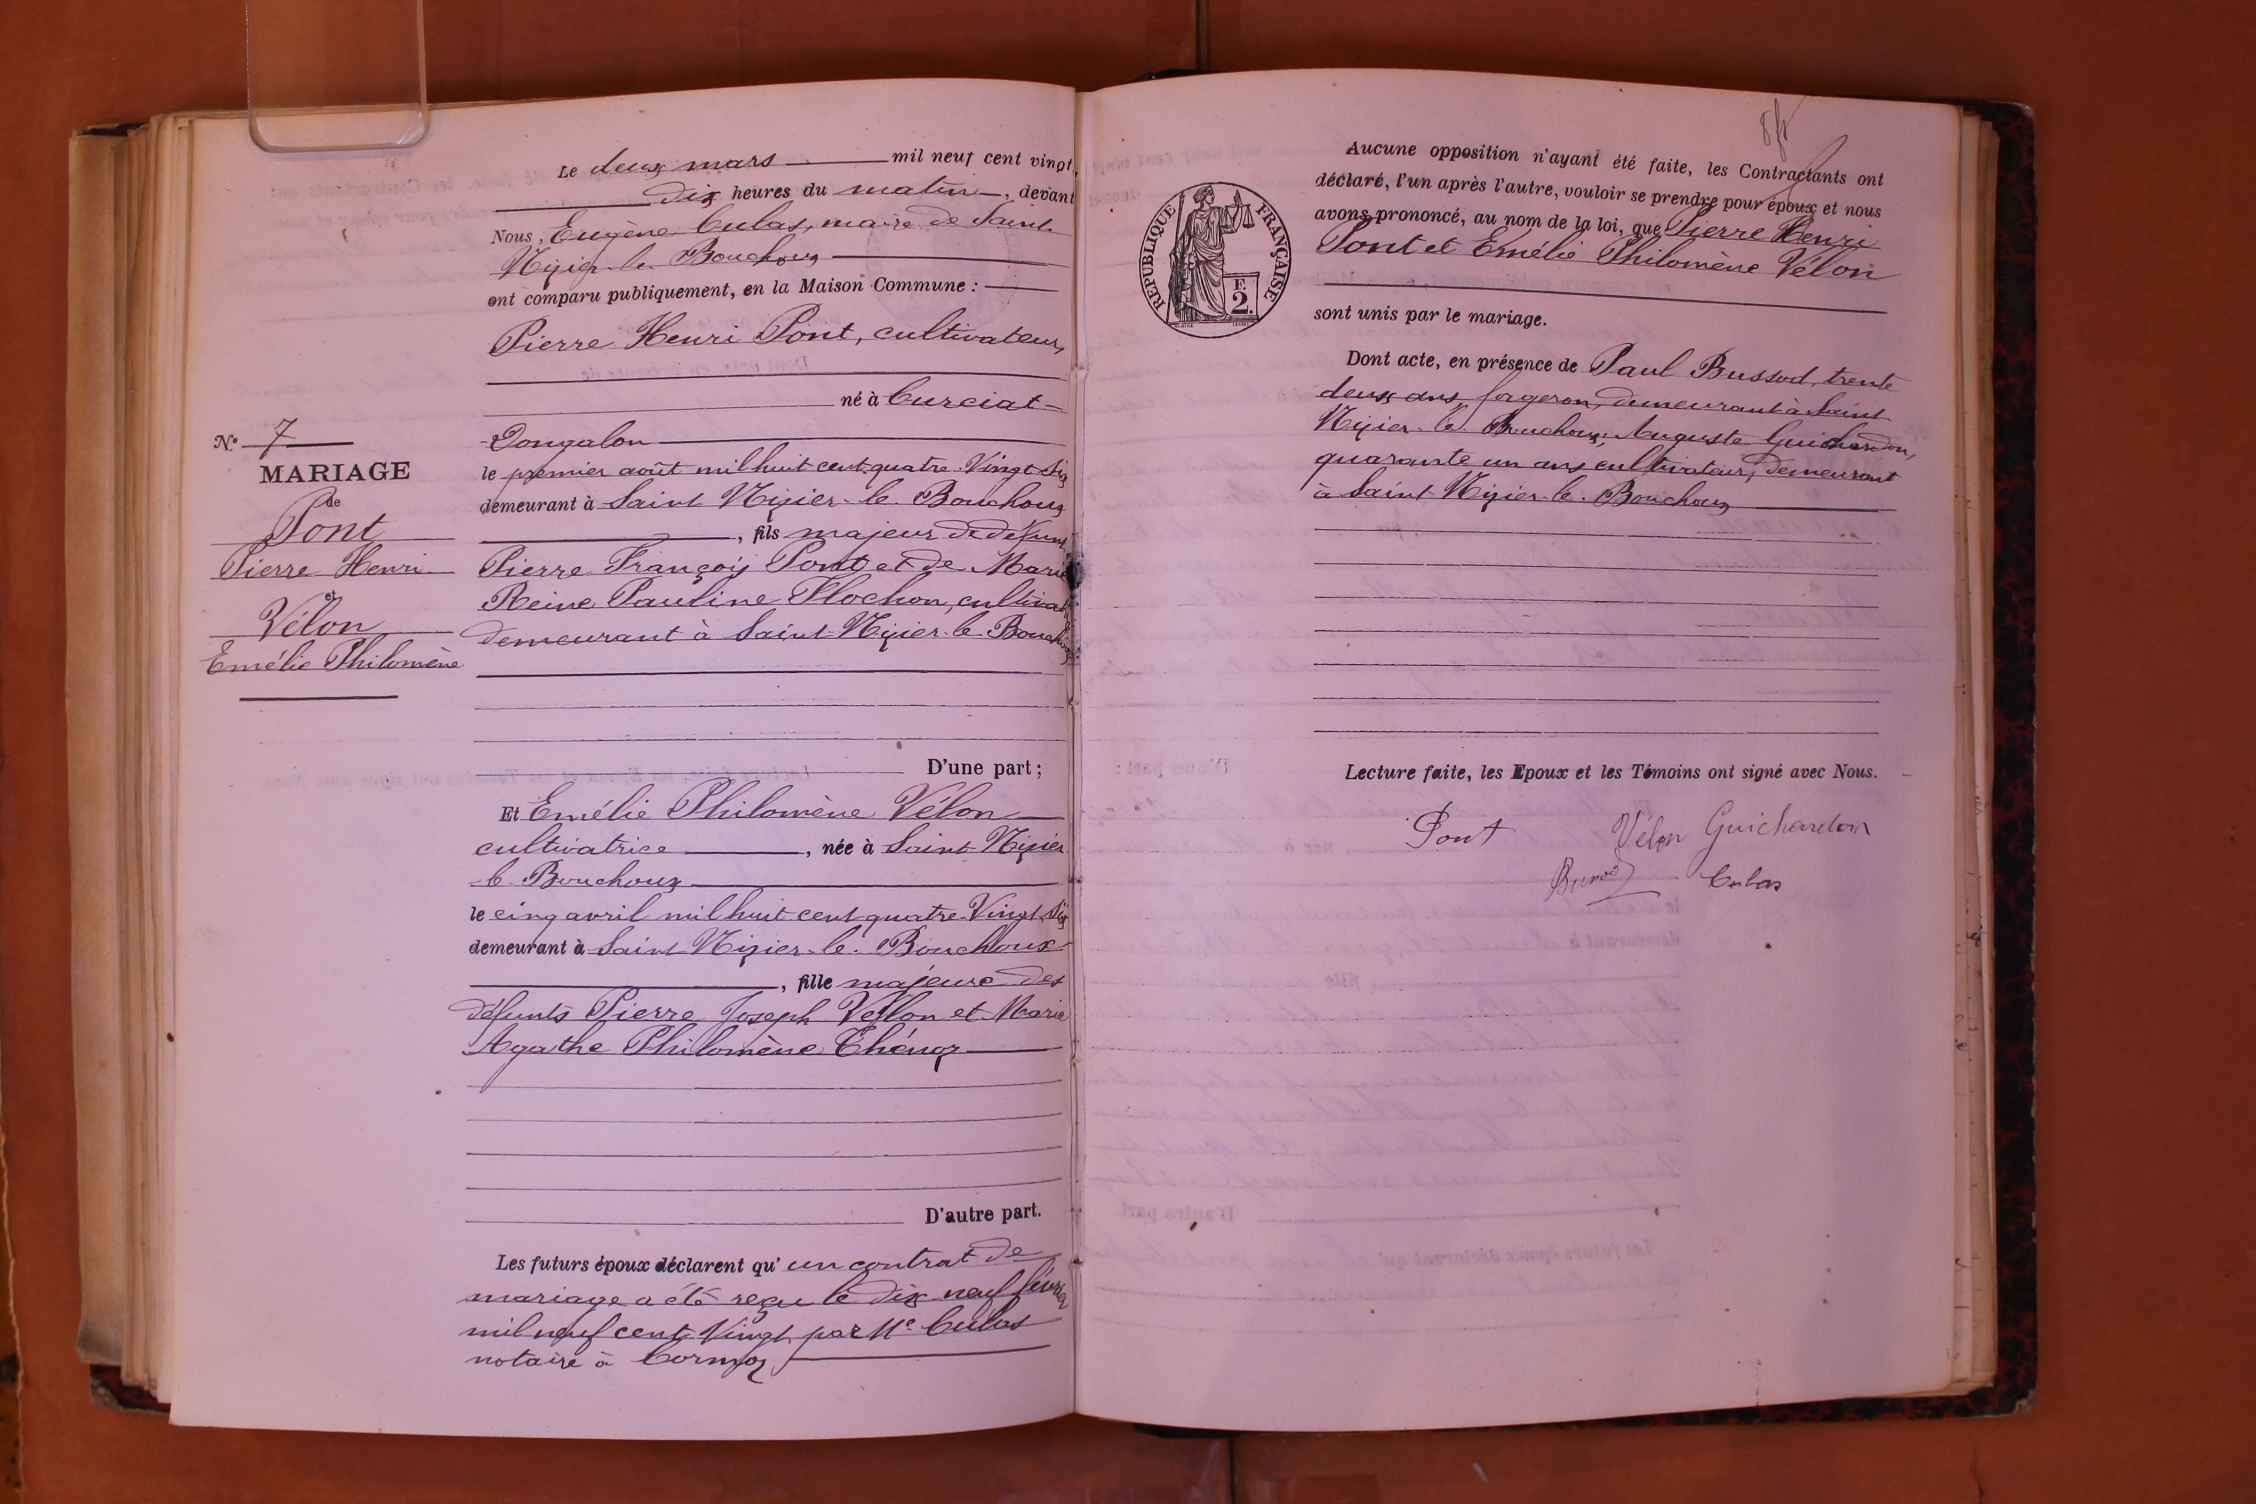 Le deux mars mil neuf cent vingt,
dix heures du matin, devant
Nous, Eugène Culas, maire de Saint-
Nizier-le-Bouchoux
ont comparu publiquement, en la Maison Commune :
Pierre Henri Pont, cultivateur,
né à Curciat-
-Dongalon
le premier août mil huit cent quatre-Vingt-six
demeurant à Saint-Nizier-le-Bouchoux
, fils majeur de défunt
Pierre François Pont et de Marie
Reine Pauline Flochon, cultivat
demeurant à Saint-Nizier-le-Bouchoux
D'une part ;
Nº 7
MARIAGE
de
Pont
Pierre Henri
et
Vélon
Emélie Philomène
Et Emélie Philomène Vélon
cultivatrice, née à Saint-Nizier
le Bouchoux
le cinq avril mil huit cent quatre-Vingt-six
demeurant à Saint-Nizier-le-Bouchoux
, fille majeure des
défunts Pierre Joseph Vellon et Marie
Agathe Philomène Thénoz
D'autre part.
Les futurs époux déclarent qu'un contrat de
mariage a été reçu le dix neuf février
mil neuf cent Vingt par Me Culas
notaire à Cormoz
RÉPUBLIQUE FRANÇAISE
F.
2.
Aucune opposition n'ayant été faite, les Contractants ont
déclaré, l'un après l'autre, vouloir se prendre pour époux et nous
avons prononcé, au nom de la loi, que Pierre Henri
Pont et Emélie Philomène Vélon
sont unis par le mariage.
Dont acte, en présence de Paul Bussod, trente
deux ans, forgeron, demeurant à Saint
Nizier-le-Bouchoux, Auguste Guichardon,
quarante un ans cultivateur, demeurant
à Saint-Nizier-le-Bouchoux
Lecture faite, les Epoux et les Témoins ont signé avec Nous.
Pont Vélon Guichardon
Culas